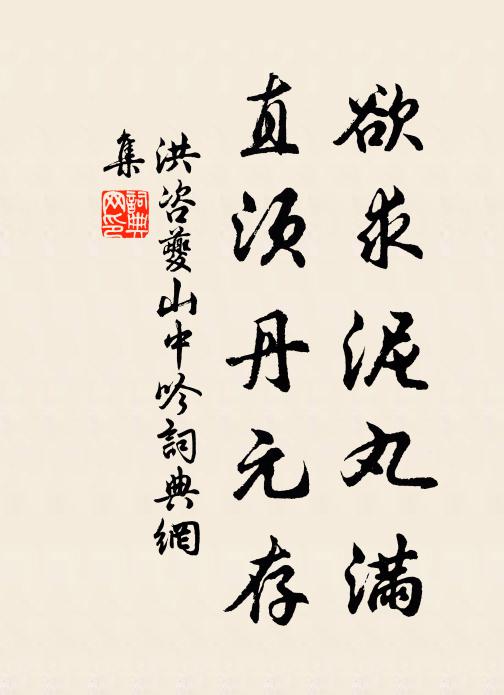 欲求泥丸满
直须丹元存
洪咨夔山中吟詞典網
集
詞典网印